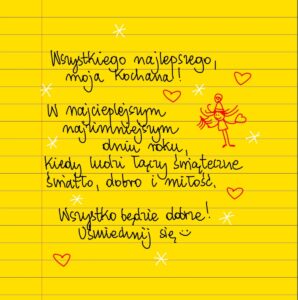 Wszystkiego najlepszego,
moja kochana!
W najcieplejszym
najzimniejszym
dniu roku,
kiedy ludzi łączy świąteczne
światło, dobro i miłość.
Wszystko będzie dobrze!
Uśmiechnij się